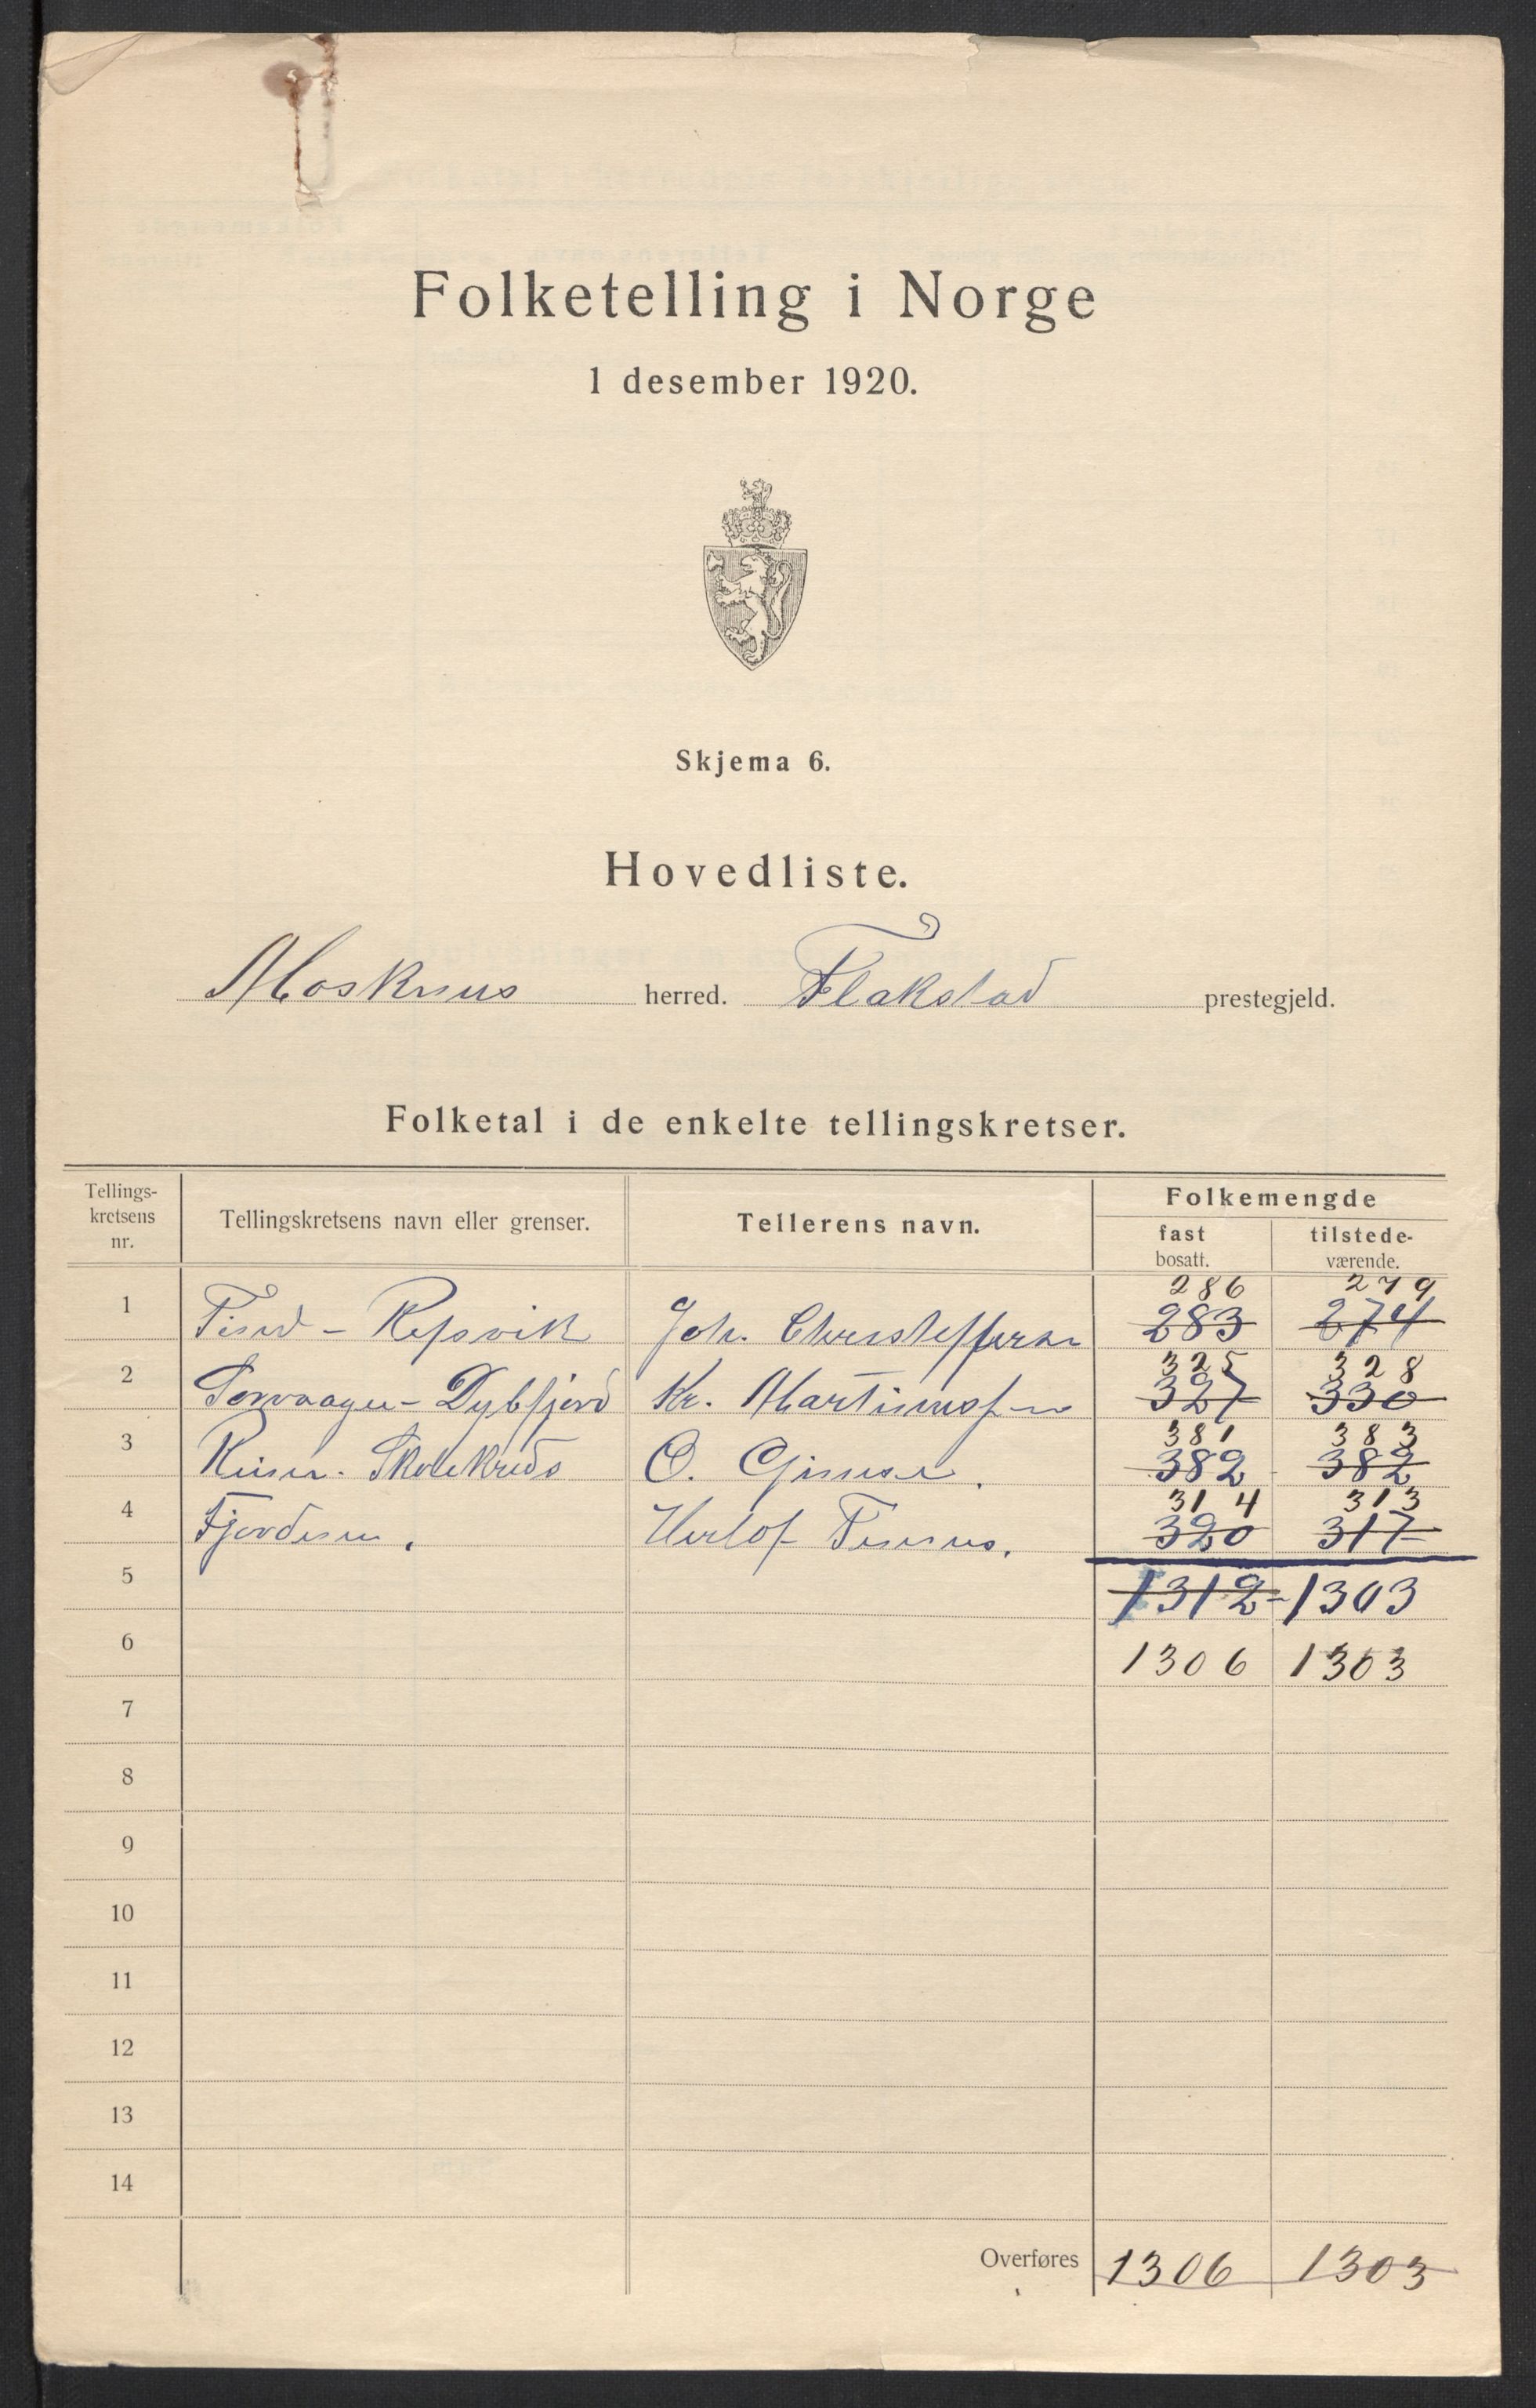 Folketelling i Norge
1 desember 1920.
Skjema 6.
Hovedliste.
Mosknes herred. Flakstad prestegjeld.
Folketal i de enkelte tellingskretser.
Tellings-kretsens nr. Tellingskretsens navn eller grenser. Tellerens navn. Folkemengde
fast bosatt. tilstede-værende.
286 279
1 Tind - Refsvik Joh. Christoffersen 283 274
325 328
2 Sørvaagen - Dybfjord Kr. Martinussen 327 330
381 383
3 Reine Skolekreds O. Gjimse. 382 382
314 313
4 Fjorden. Herlof 320 317
5 1312 - 1303
6 1306 1303
7
8
9
10
11
12
13
14
Overføres 1306 1303